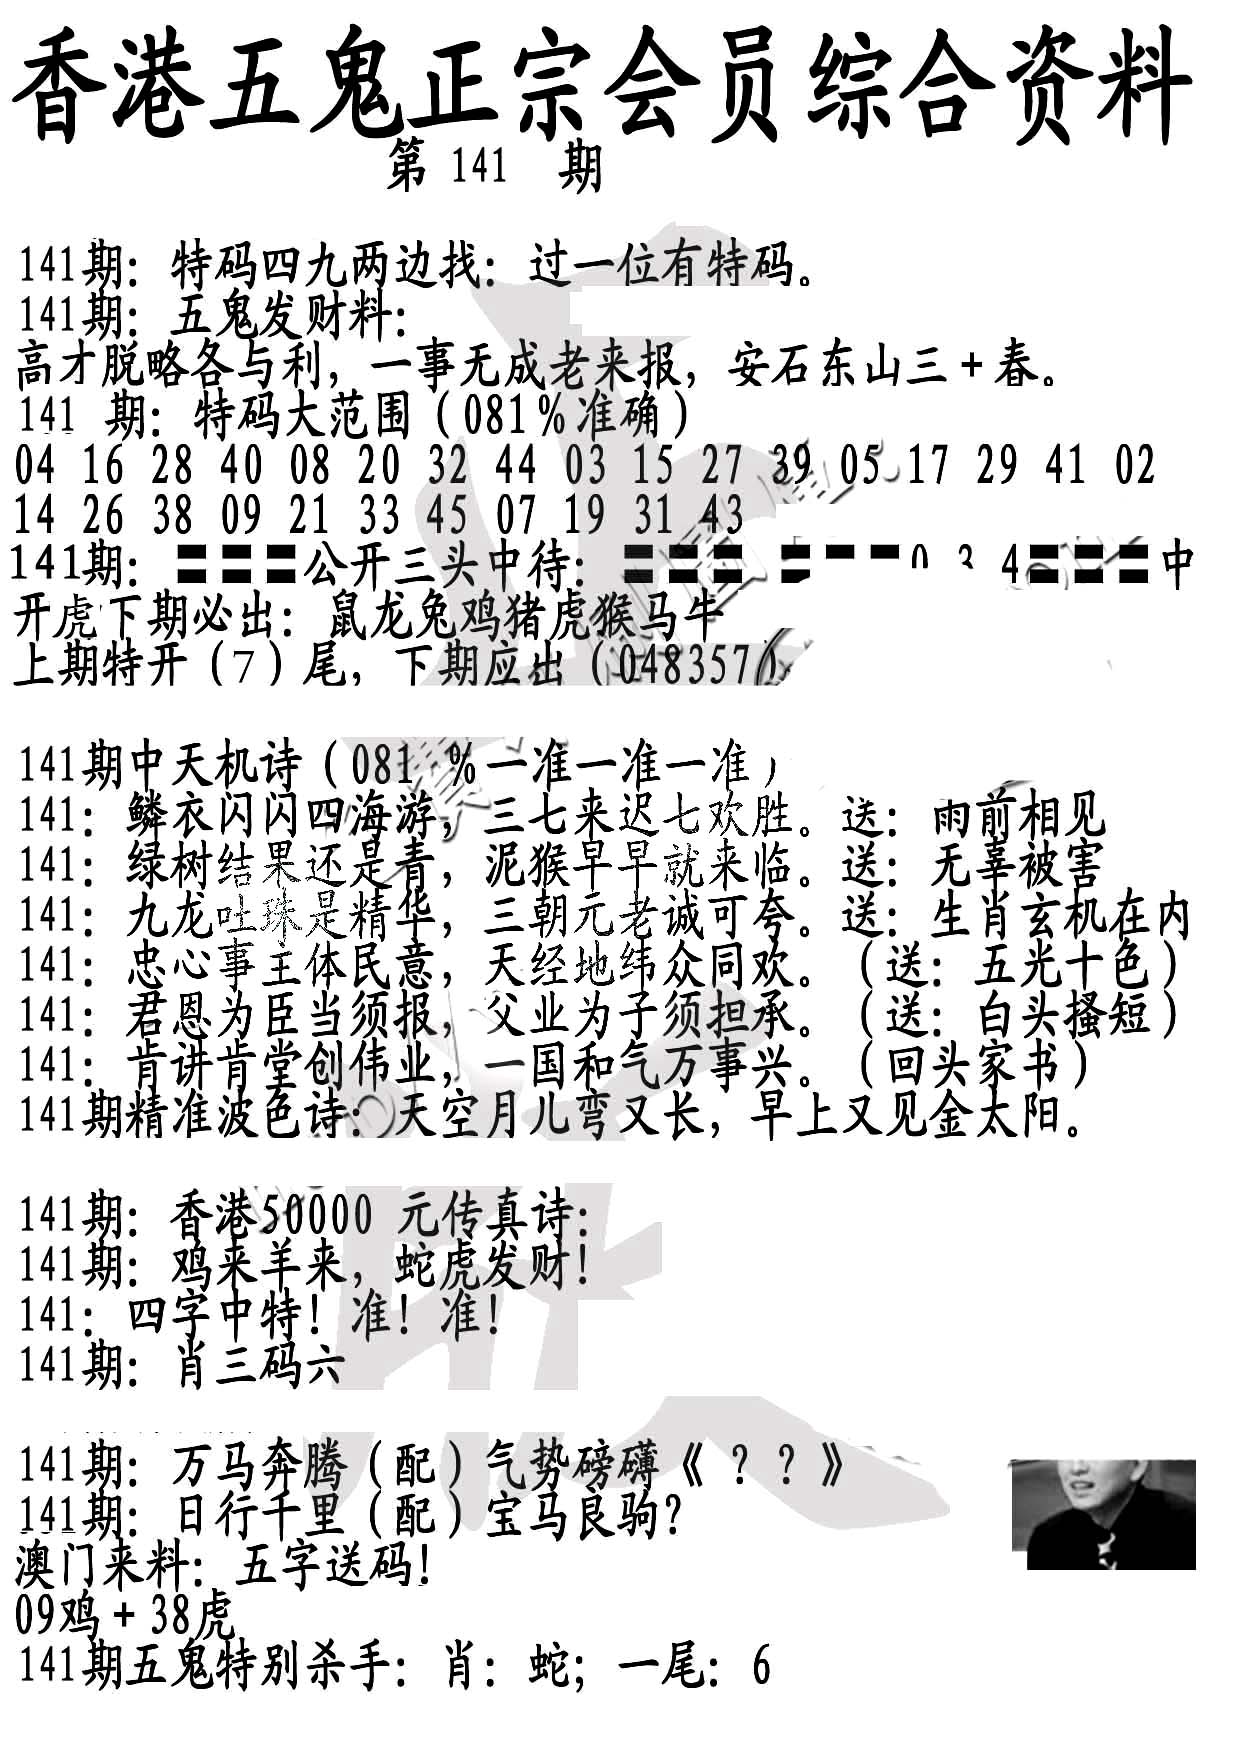 香港五鬼正宗会员综合资料
第 141 期
141期：特码四九两边找：过一位有特码。
141期：五鬼发财料：
高才脱略各与利，一事无成老来报，安石东山三+春。
141 期：特码大范围（081%准确）
04 16 28 40 08 20 32 44 03 15 27 39 05 17 29 41 02
14 26 38 09 21 33 45 07 19 31 43
141期：〓〓〓公开三头中待：〓〓〓 〓 0 3 4〓〓〓中
开虎下期必出：鼠龙兔鸡猪虎猴马牛
上期特开（7）尾，下期应出（048357）
141期中天机诗（081 %一准一准一准）
141：鳞衣闪闪四海游，三七来迟七欢胜。送：雨前相见
141：绿树结果还是青，泥猴早早就来临。送：无辜被害
141：九龙吐珠是精华，三朝元老诚可夸。送：生肖玄机在内
141：忠心事主体民意，天经地纬众同欢。（送：五光十色）
141：君恩为臣当须报，父业为子须担承。（送：白头搔短）
141：肯讲肯堂创伟业，一国和气万事兴。（回头家书）
141期精准波色诗：天空月儿弯又长，早上又见金太阳。
141期：香港50000 元传真诗：
141期：鸡来羊来，蛇虎发财！
141：四字中特！准！准！
141期：肖三码六
141期：万马奔腾（配）气势磅礴《？？》
141期：日行千里（配）宝马良驹？
澳门来料：五字送码！
09鸡+38虎
141期五鬼特别杀手：肖：蛇；一尾：6